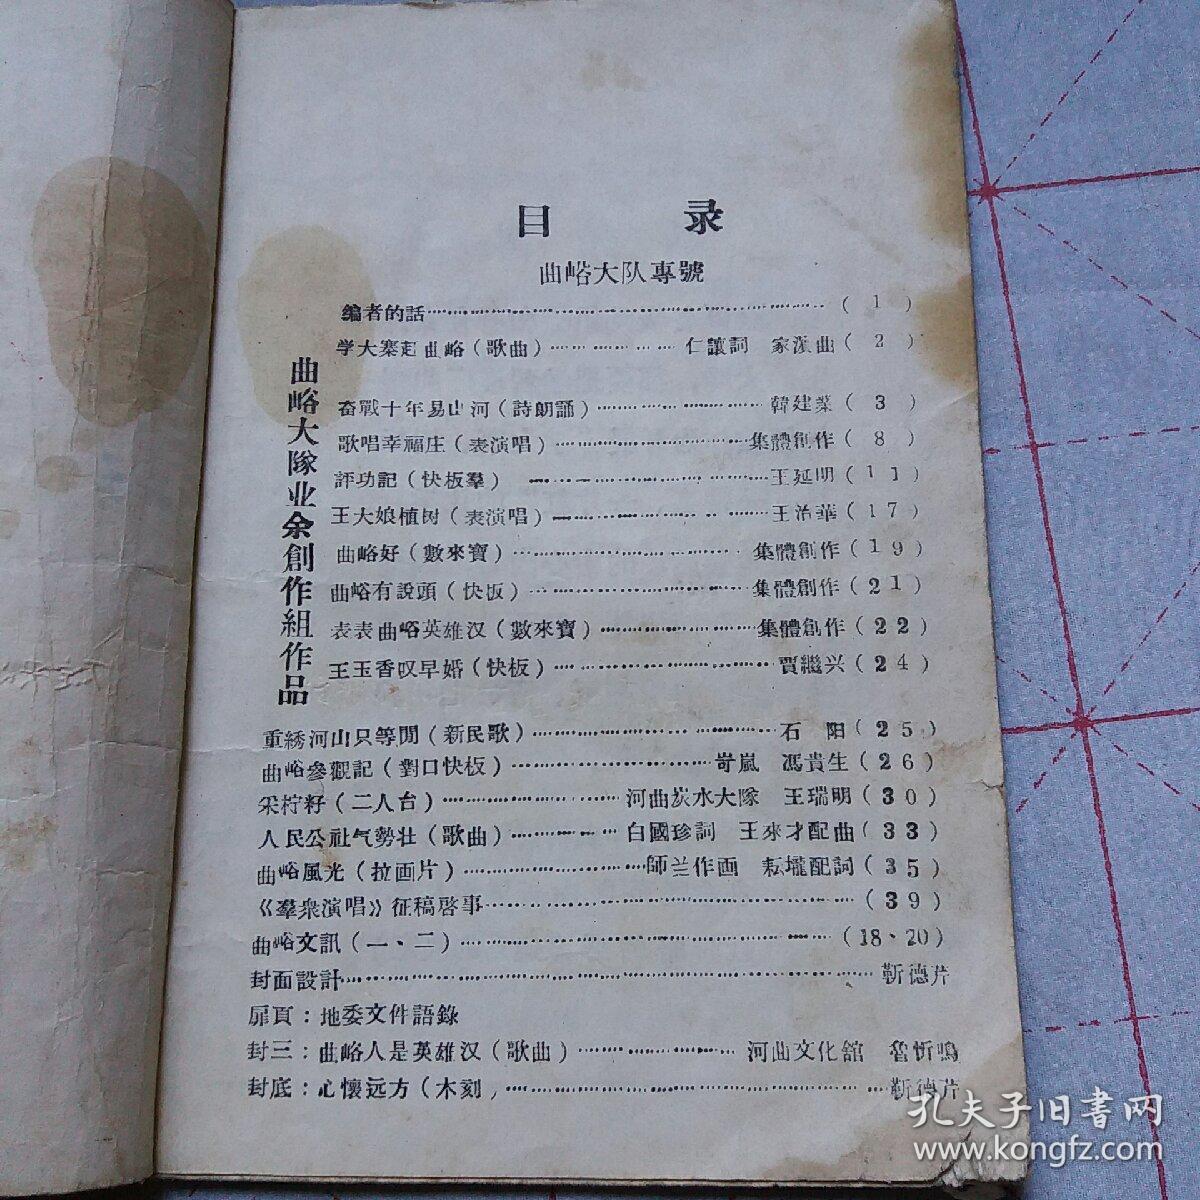 目 录
曲峪大队專號
編者的話……(1)
学大寨赶曲峪(歌曲)……仁讓詞 家漢曲(2)
曲峪大隊业余創作組作品
奋戰十年易山河(詩朗誦)……韓建業(3)
歌唱幸福庄(表演唱)……集體創作(8)
評功記(快板羣)……王延明(11)
王大娘植树(表演唱)……王治華(17)
曲峪好(數來寶)……集體創作(19)
曲峪有說頭(快板)……集體創作(21)
表表曲峪英雄汉(數來寶)……集體創作(22)
王玉香叹早婚(快板)……賈繼兴(24)
重綉河山只等閒(新民歌)……石 阳(25)
曲峪參觀記(對口快板)……岢嵐 馮貴生(26)
采柠籽(二人台)……河曲炭水大隊 王瑞明(30)
人民公社气勢壮(歌曲)……白國珍詞 王來才配曲(33)
曲峪風光(拉画片)……師兰作画 耘壠配詞(35)
《羣衆演唱》征稿啓事……(39)
曲峪文訊(一、二)……(18、20)
封面設計……靳德芹
扉頁:地委文件語錄
封三:曲峪人是英雄汉(歌曲)……河曲文化館 魯忻鳴
封底:心懷远方(木刻)……靳德芹
孔夫子旧书网
www.kongfz.com